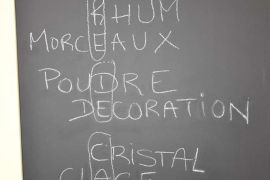 RHUM
MORCEAUX
POUDRE
DECORATION
CRISTAL
GLACE